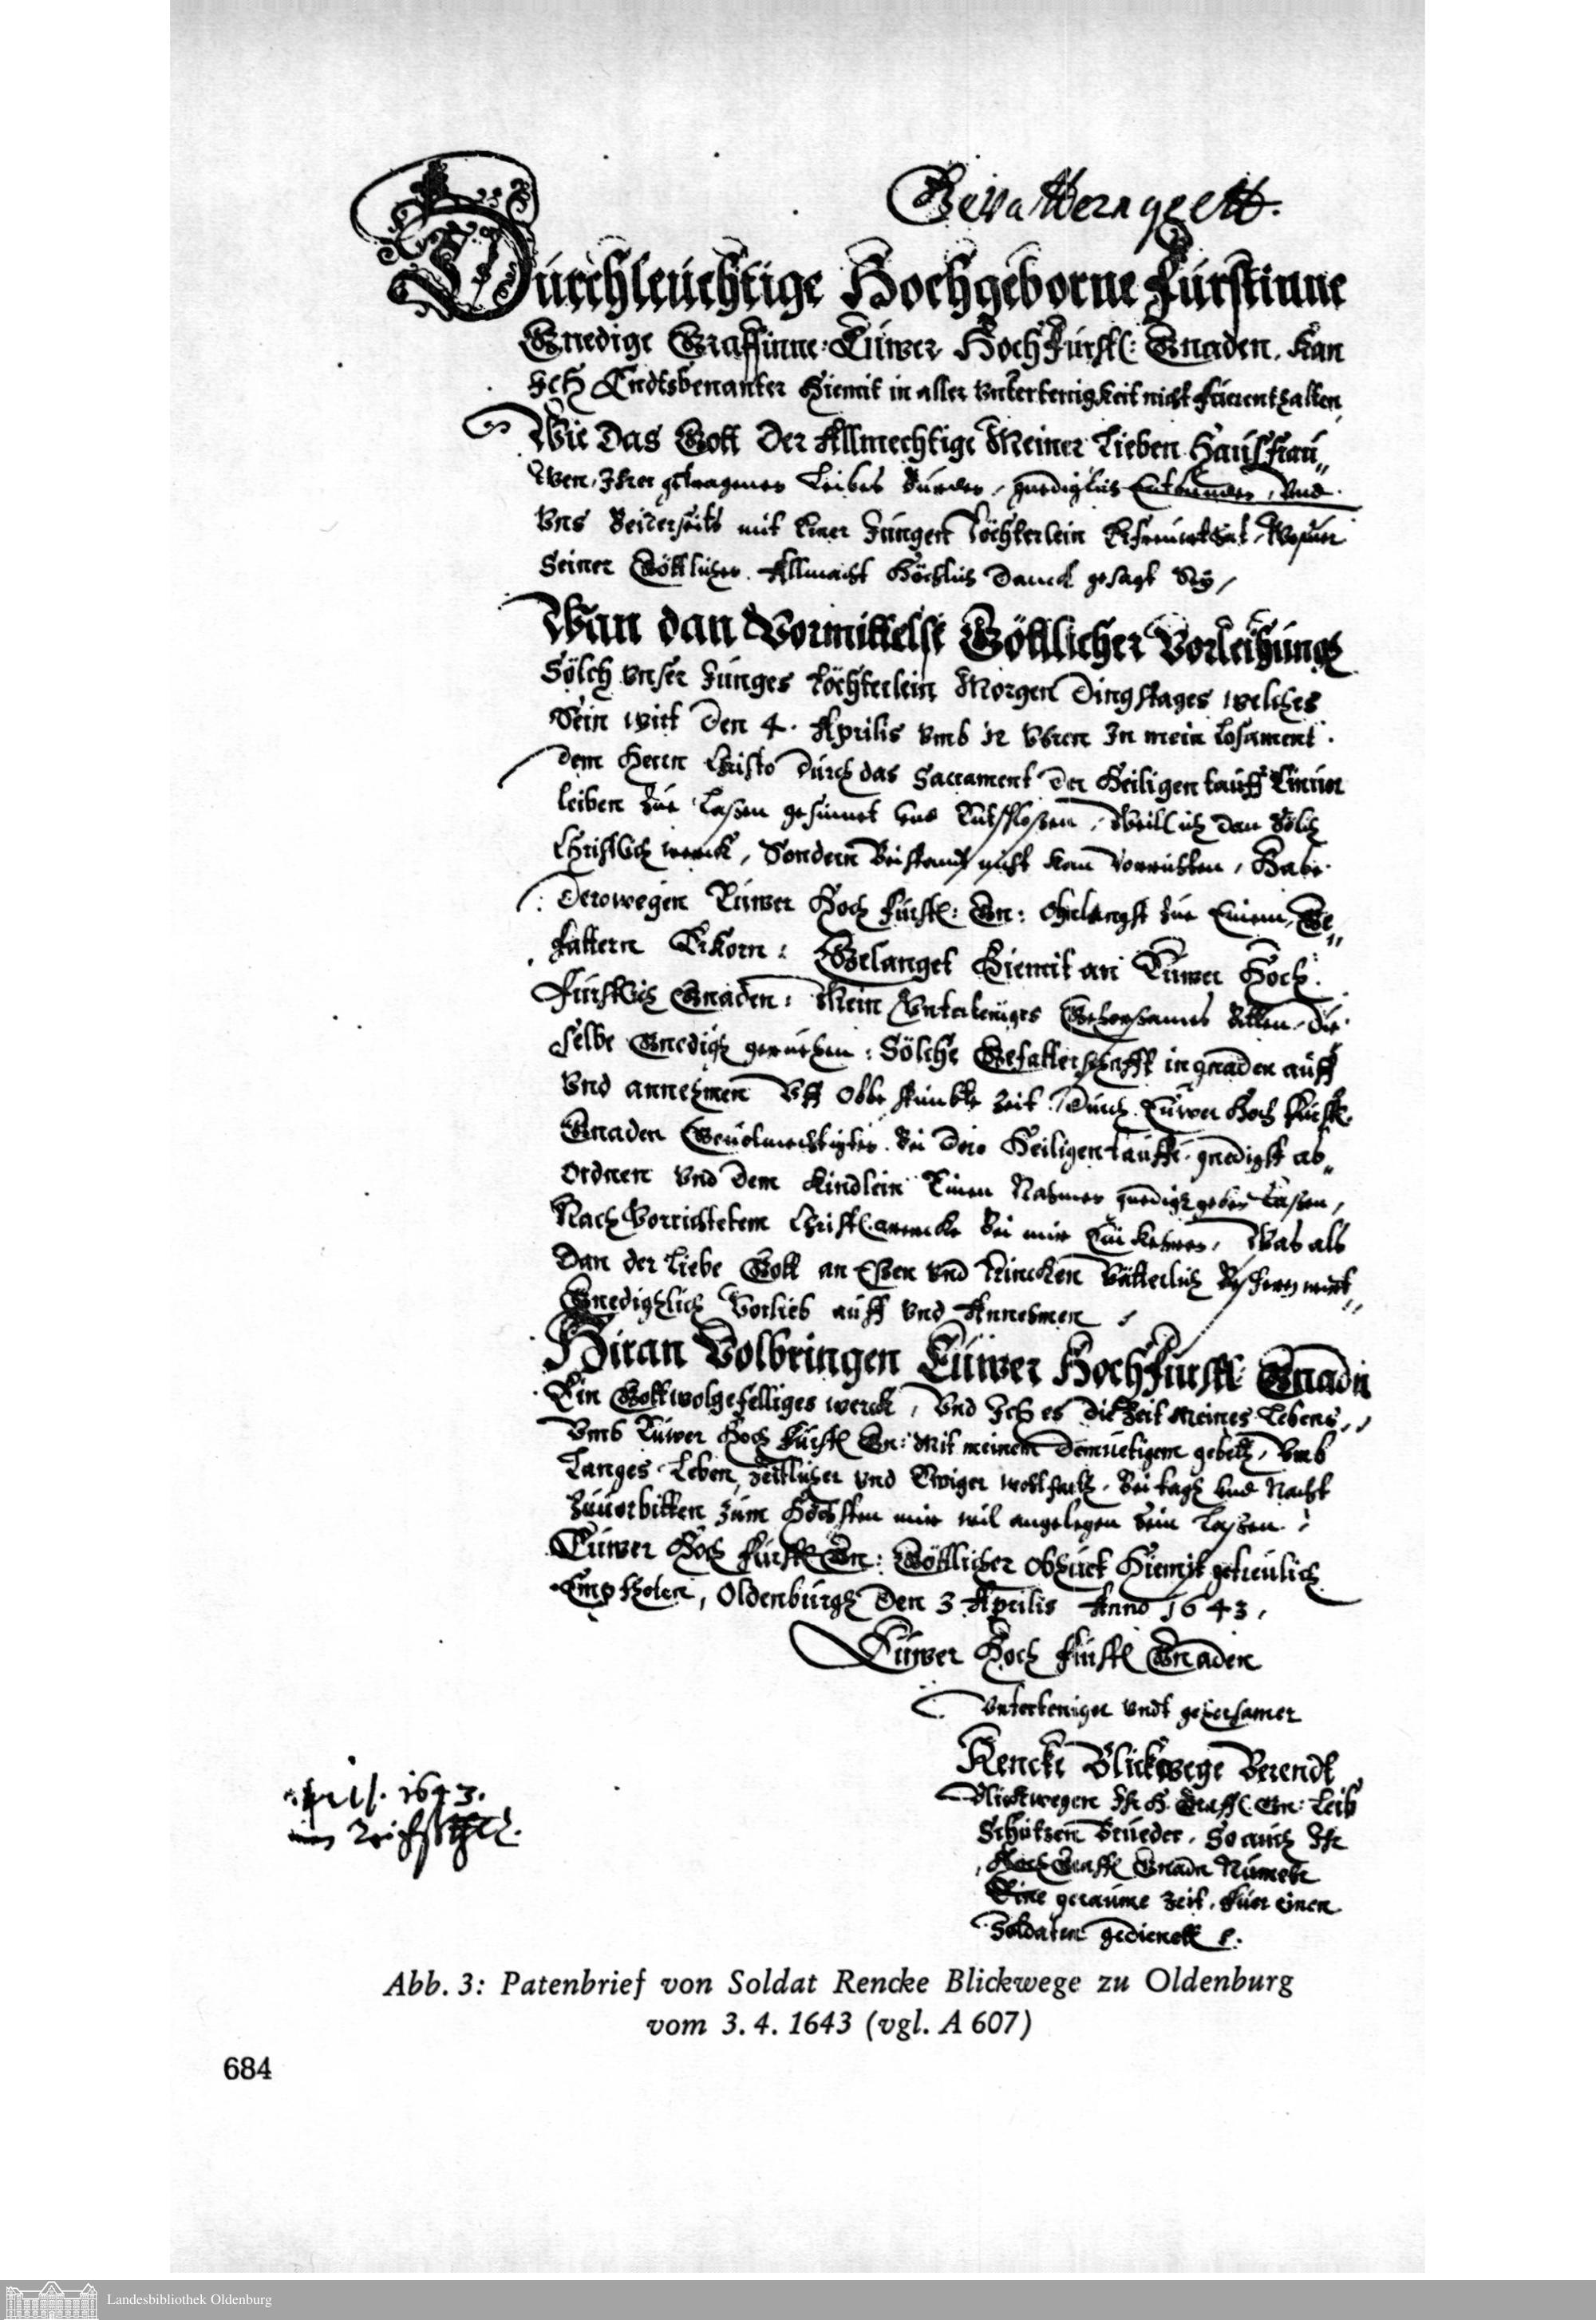 Gevatterngelt.
Durchleuchtige Hochgeborne Fürstinne
Gnedige Graffinne: Euwer Hochfürstl: Gnaden, kan
Ich Endtsbenanter Hiemit in aller untertenigkeit nicht fürenthalten
Wie Das Gott Der Allmechtige Meiner Lieben Hausfrau„
wen, Ihrer getragenen Leibes Bürden, gnediglich Entbunden, Und
Uns Beiderseits mit Einer Jungen Töchterlein Erfreuwet hat, Wofür
Seiner Göttlichen Allmacht Höchlich Danck gesagt Sey,
Wan dan Vormittelst Göttlicher Vorleihung
Sölch unser Junges Töchterlein Morgen Dingstages welches
Sein wirt Den 4. Aprilis umb 12 Uhren In mein Losament
dem Herrn Christo Durch das Sacrament Der Heiligen tauff Einvor
leiben zue Laßen gesinnet und Entschloßen, Weill ich Dan Sölch
Christlich werck, Sondern Beistandt nicht kan Vorrichten, Habe
Derowegen Euwer Hoch fürstl: Gn: ohnlengst zue Einem Ge„
fattern Erkorn: Gelanget Hiemit an Euwer Hoch.
Fürstlich Gnaden: Mein Unterteniges Gehorsames Bitten, Die
selbe Gnedigh geruehen: Sölche Gefatterschafft in gnaden auff
Und annehmen Uff Obbestimbte zeit, Durch Euwer Hoch fürstl.
Gnaden Gevolmechtigten Bei Dero Heiligen tauffe gnedigst ab„
Ordnen und Dem Kindlein Einen Nahmen gnedigh geben Laßen,
Nach Vorrichtetem Christl. wercke Bei mir Einkehren, Was als
Dan der Liebe Gott an Eßen und Trincken Vätterlich Bescheren wirt„
Gnediglich Vorlieb auff und Annehmen
Hiran Volbringen Euwer Hochfürstl: Gnadn
Ein Gottwolgefelliges werck, Und Ich es Die Zeit Meines Lebens,
Umb Euwer Hoch fürstl Gn: Mit meinem Demuetigem gebett, Umb
Langes Leben, zeitlicher und Ewiger wollfarth, Bei tagh und Nacht
Zuuorbitten zum Höchsten mir wil angelegen Sein Laßen
Euwer Hoch fürstl Gn: Göttlicher Obhuet Hiemit getreulich
Empfholen, Oldenburgh Den 3 Aprilis Anno 1643,
Euwer Hoch fürstl Gnaden
Unterteniger undt gehorsamer
Rencke Blickwege Berendt
Blickwegen Ihr H. Graffl. Gn: Leib
Schützen Brueder, So auch Ihr
Hoch Graffl Gnadn Nunmehr
Eine geraume zeit, für einen
Soldaten gedienett
April. 1643.
Abb. 3: Patenbrief von Soldat Rencke Blickwege zu Oldenburg
vom 3. 4. 1643 (vgl. A 607)
684
Landesbibliothek Oldenburg